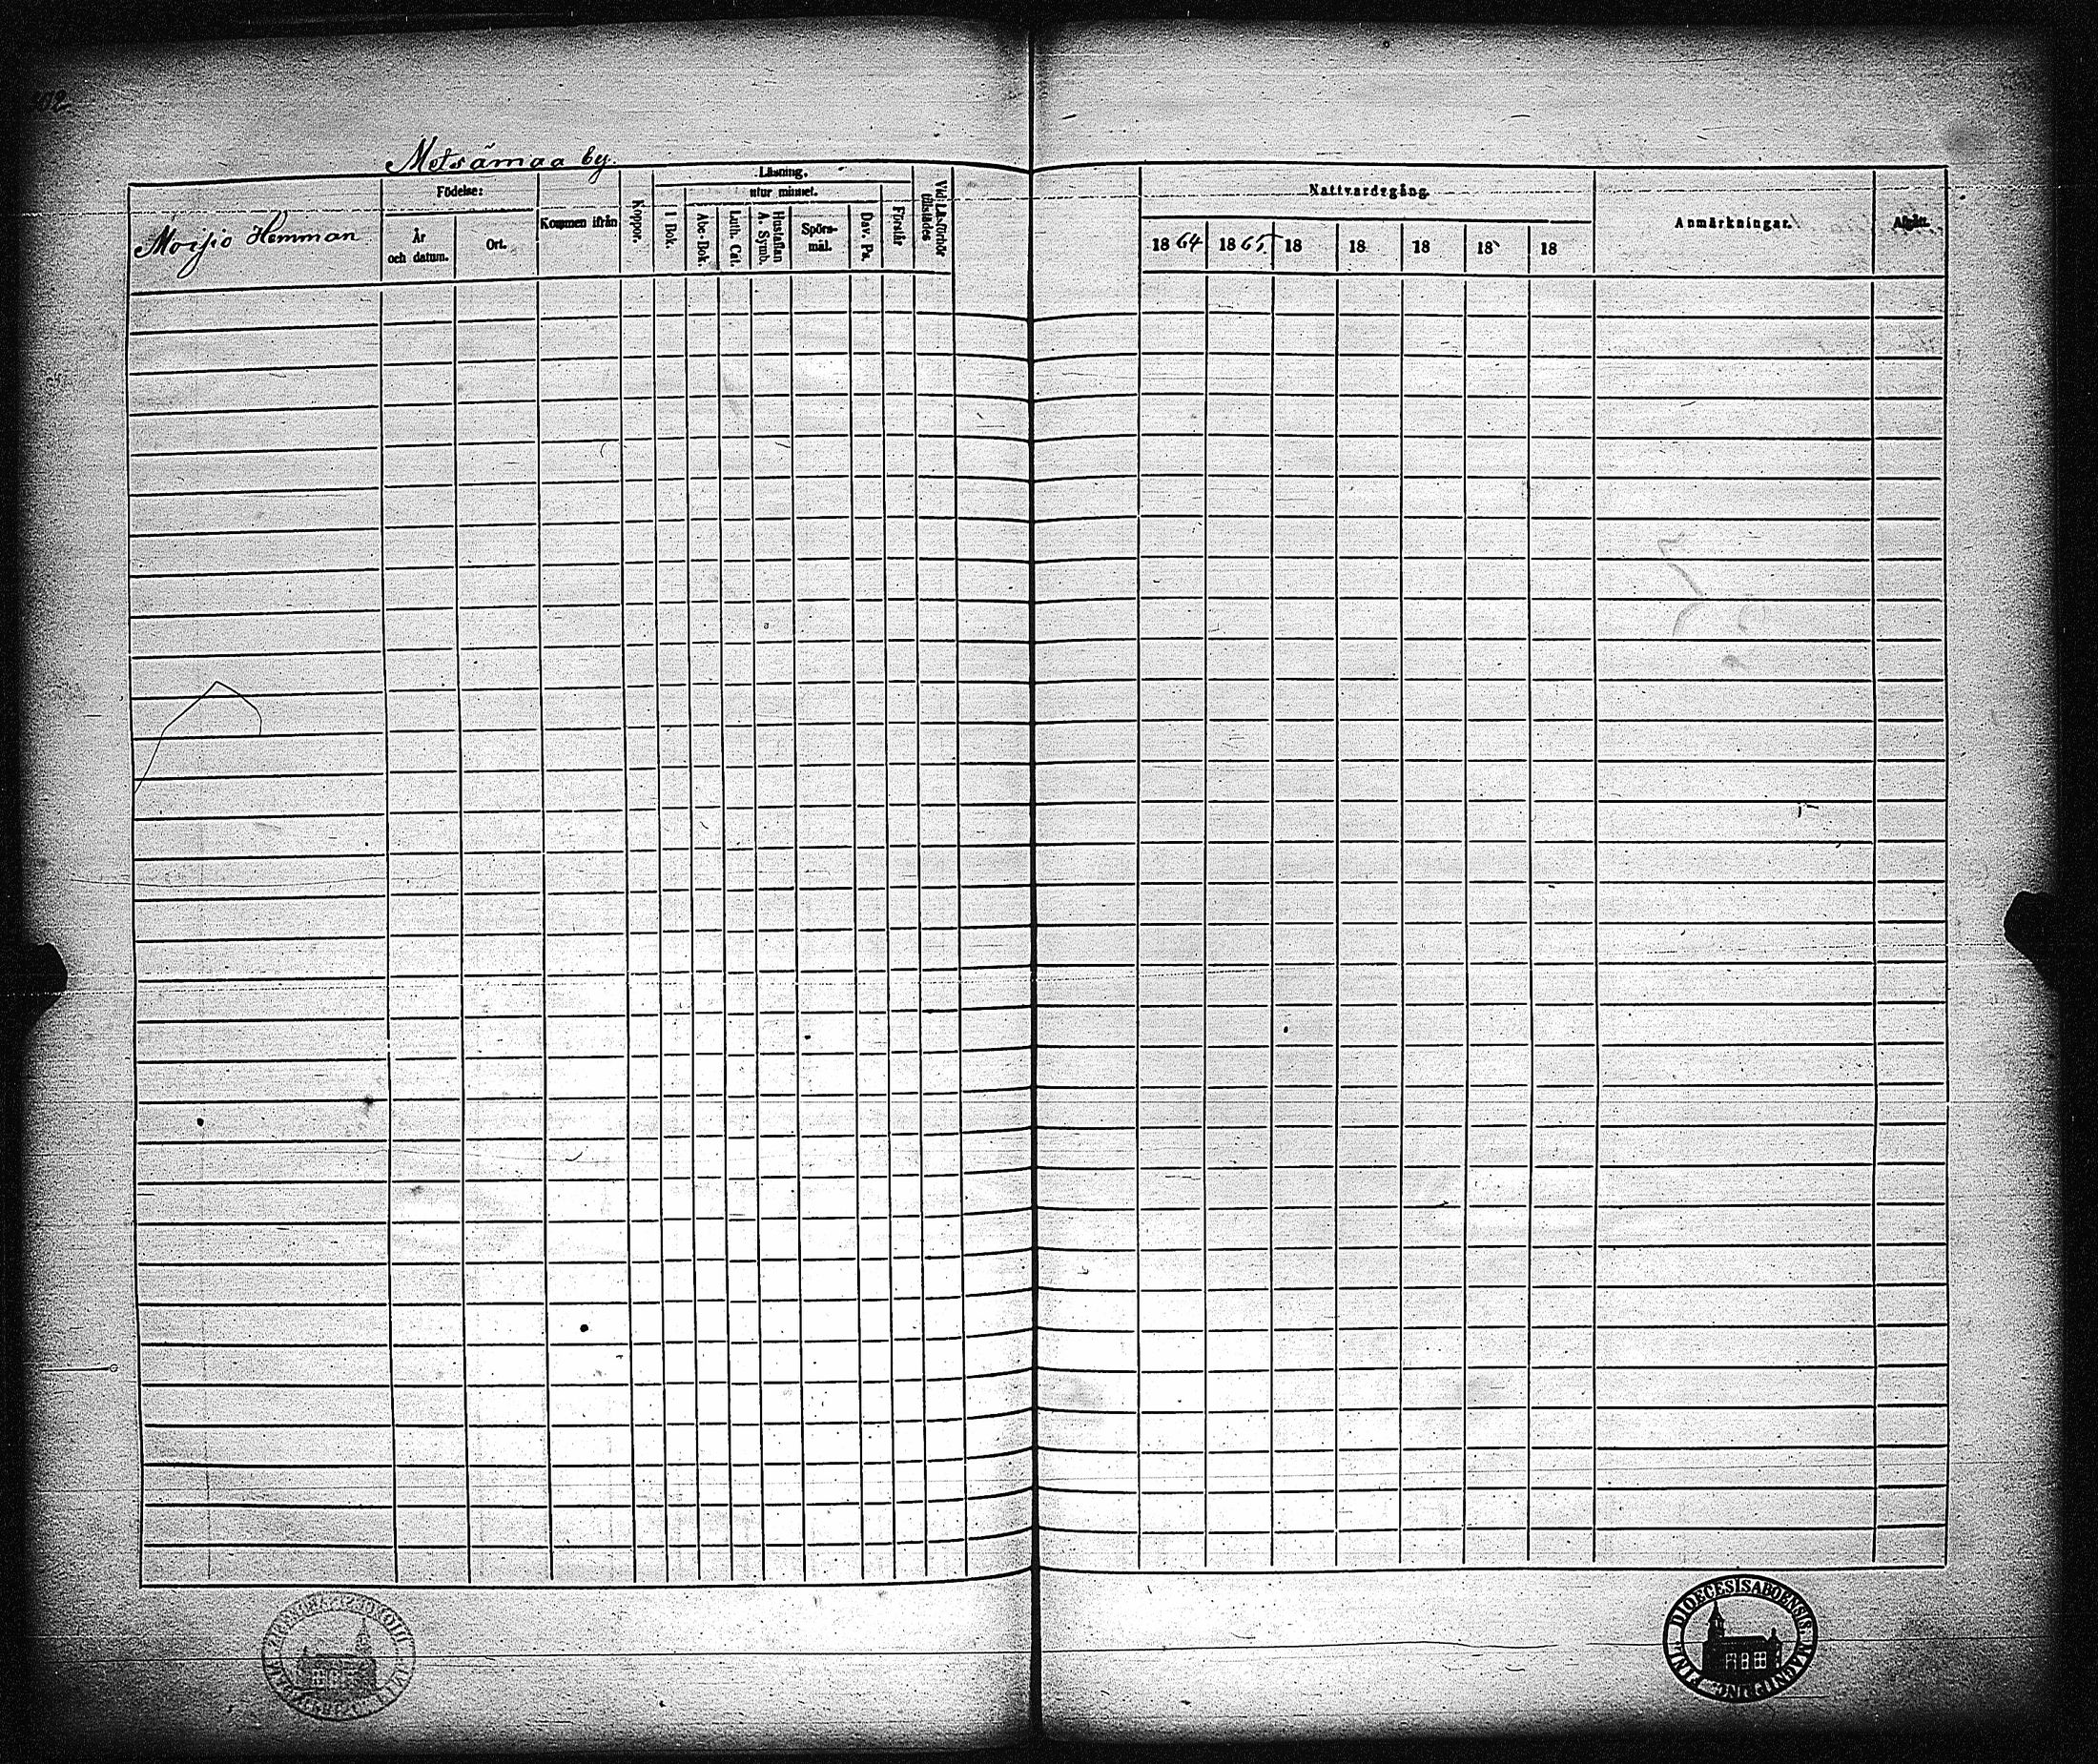 Metsämaa by.
Moisio Hemman
Födelse:
År
och datum.
Ort.
Kommen ifrån
Koppor.
Läsning,
utur minnet.
I Bok.
Abc-Bok.
Luth. Cat.
Hustaflan
A. Symb.
Spörs-
mål.
Dav. Ps.
Förstår
Vid Läsförhör
tillstädes
Nattvardsgång.
1864 1865 18 18 18 18 18
Anmärkningar.
Afgått.
DIOECESIS ABOENSIS MAGNI PRINC. FINL.